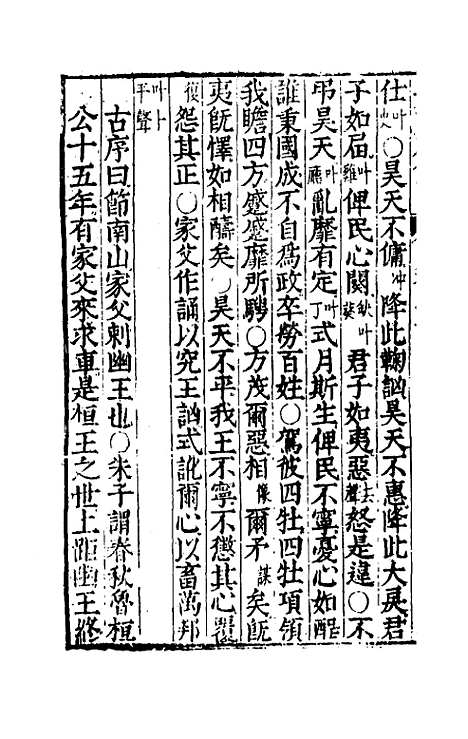 仕叶史○昊天不傭冲降此鞠訩昊天不惠降此大戾君
子如屆叶雞俾民心闋叶君子如夷惡去聲怒是違○不
弔昊天叶廰亂靡有定叶丁式月斯生俾民不寧憂心如酲
誰秉國成不自爲政卒勞百姓○駕彼四牡四牡項領
我瞻四方蹙蹙靡所騁○方茂爾惡相像爾矛謀矣旣
夷旣懌如相醻矣○昊天不平我王不寧不懲其心覆
復怨其正○家父作誦以究王訩式訛爾心以畜萬邦
叶卜平聲
古序曰節南山家父刺幽王也○朱子謂春秋魯桓
公十五年有家父來求車是桓王之世上距幽王終